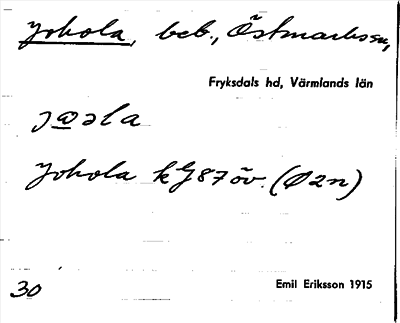 Johola, beb., Östmarks sn,
Fryksdals hd, Värmlands län
Johola kG87 öv. (Ø2n)
30
Emil Eriksson 1915